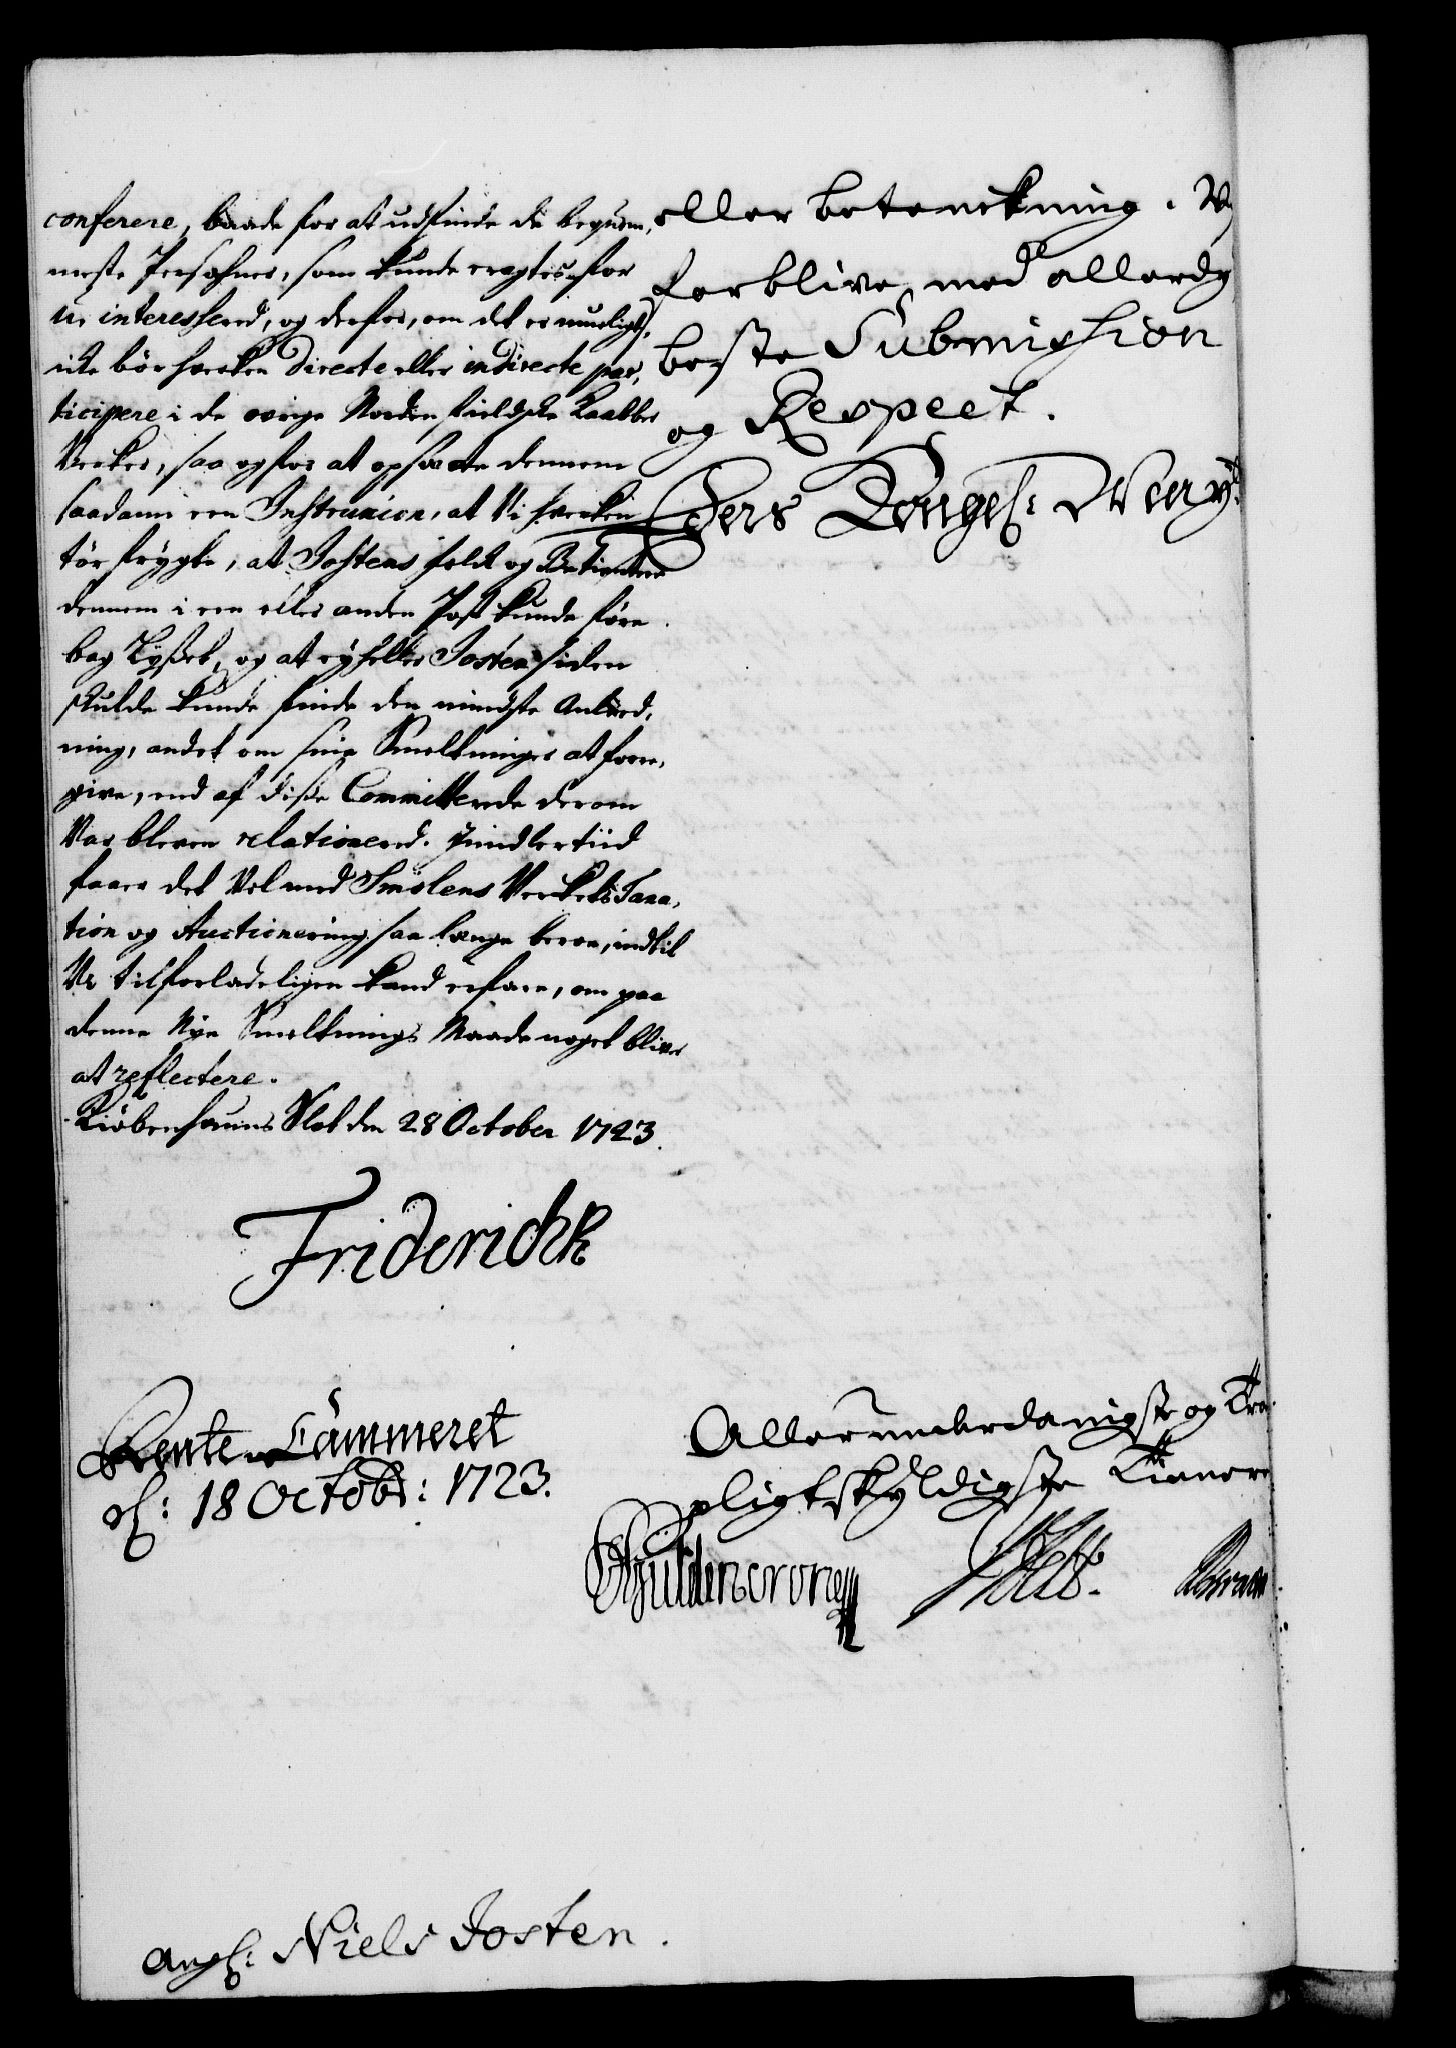 conferere, baade for at udfinde de beqvem,
meste Persohner, som kunde eragtes for
u-interessered, og derfor, om det er mueligt,
icke bör hverken directe eller indirecte par,
ticipere i de øvrige Nordenfieldske Kaabber
Verker, saa og for at opsætte dennem
saadann een Instruxion, at Vi hverken
tör frygte, at Jostens folk og Betientere
dennem i een eller anden Post kunde före
bag Lyßet, og at ey heller Josten siden
skulde kunde finde den mindste Anled,
ning, andet om sine Smeltninger at fore,
give, end af diße Committerede derom
Var bleven relationered. Jmidlertiid
faaer det Vel med Smølens Verkets Taxa,
tion og Auctionering saa længe beroe, indtil
Vi tilforladeligen kand erfare, om paa
denne Nye Smeltnings Maade noget bliver
at reflectere.
Kiöbenhauns Slot den 28 October 1723.
Friderich R
Rente Cammeret
d: 18 Octobr: 1723.
ang: Niels Josten.
eller betenckning. Vi
forblive med allerdy
beste Submission
og Respect.
Eders Kongel: May:
Allerunderdanigste og Tro
pligtskyldigste Tienere
Güldencrone